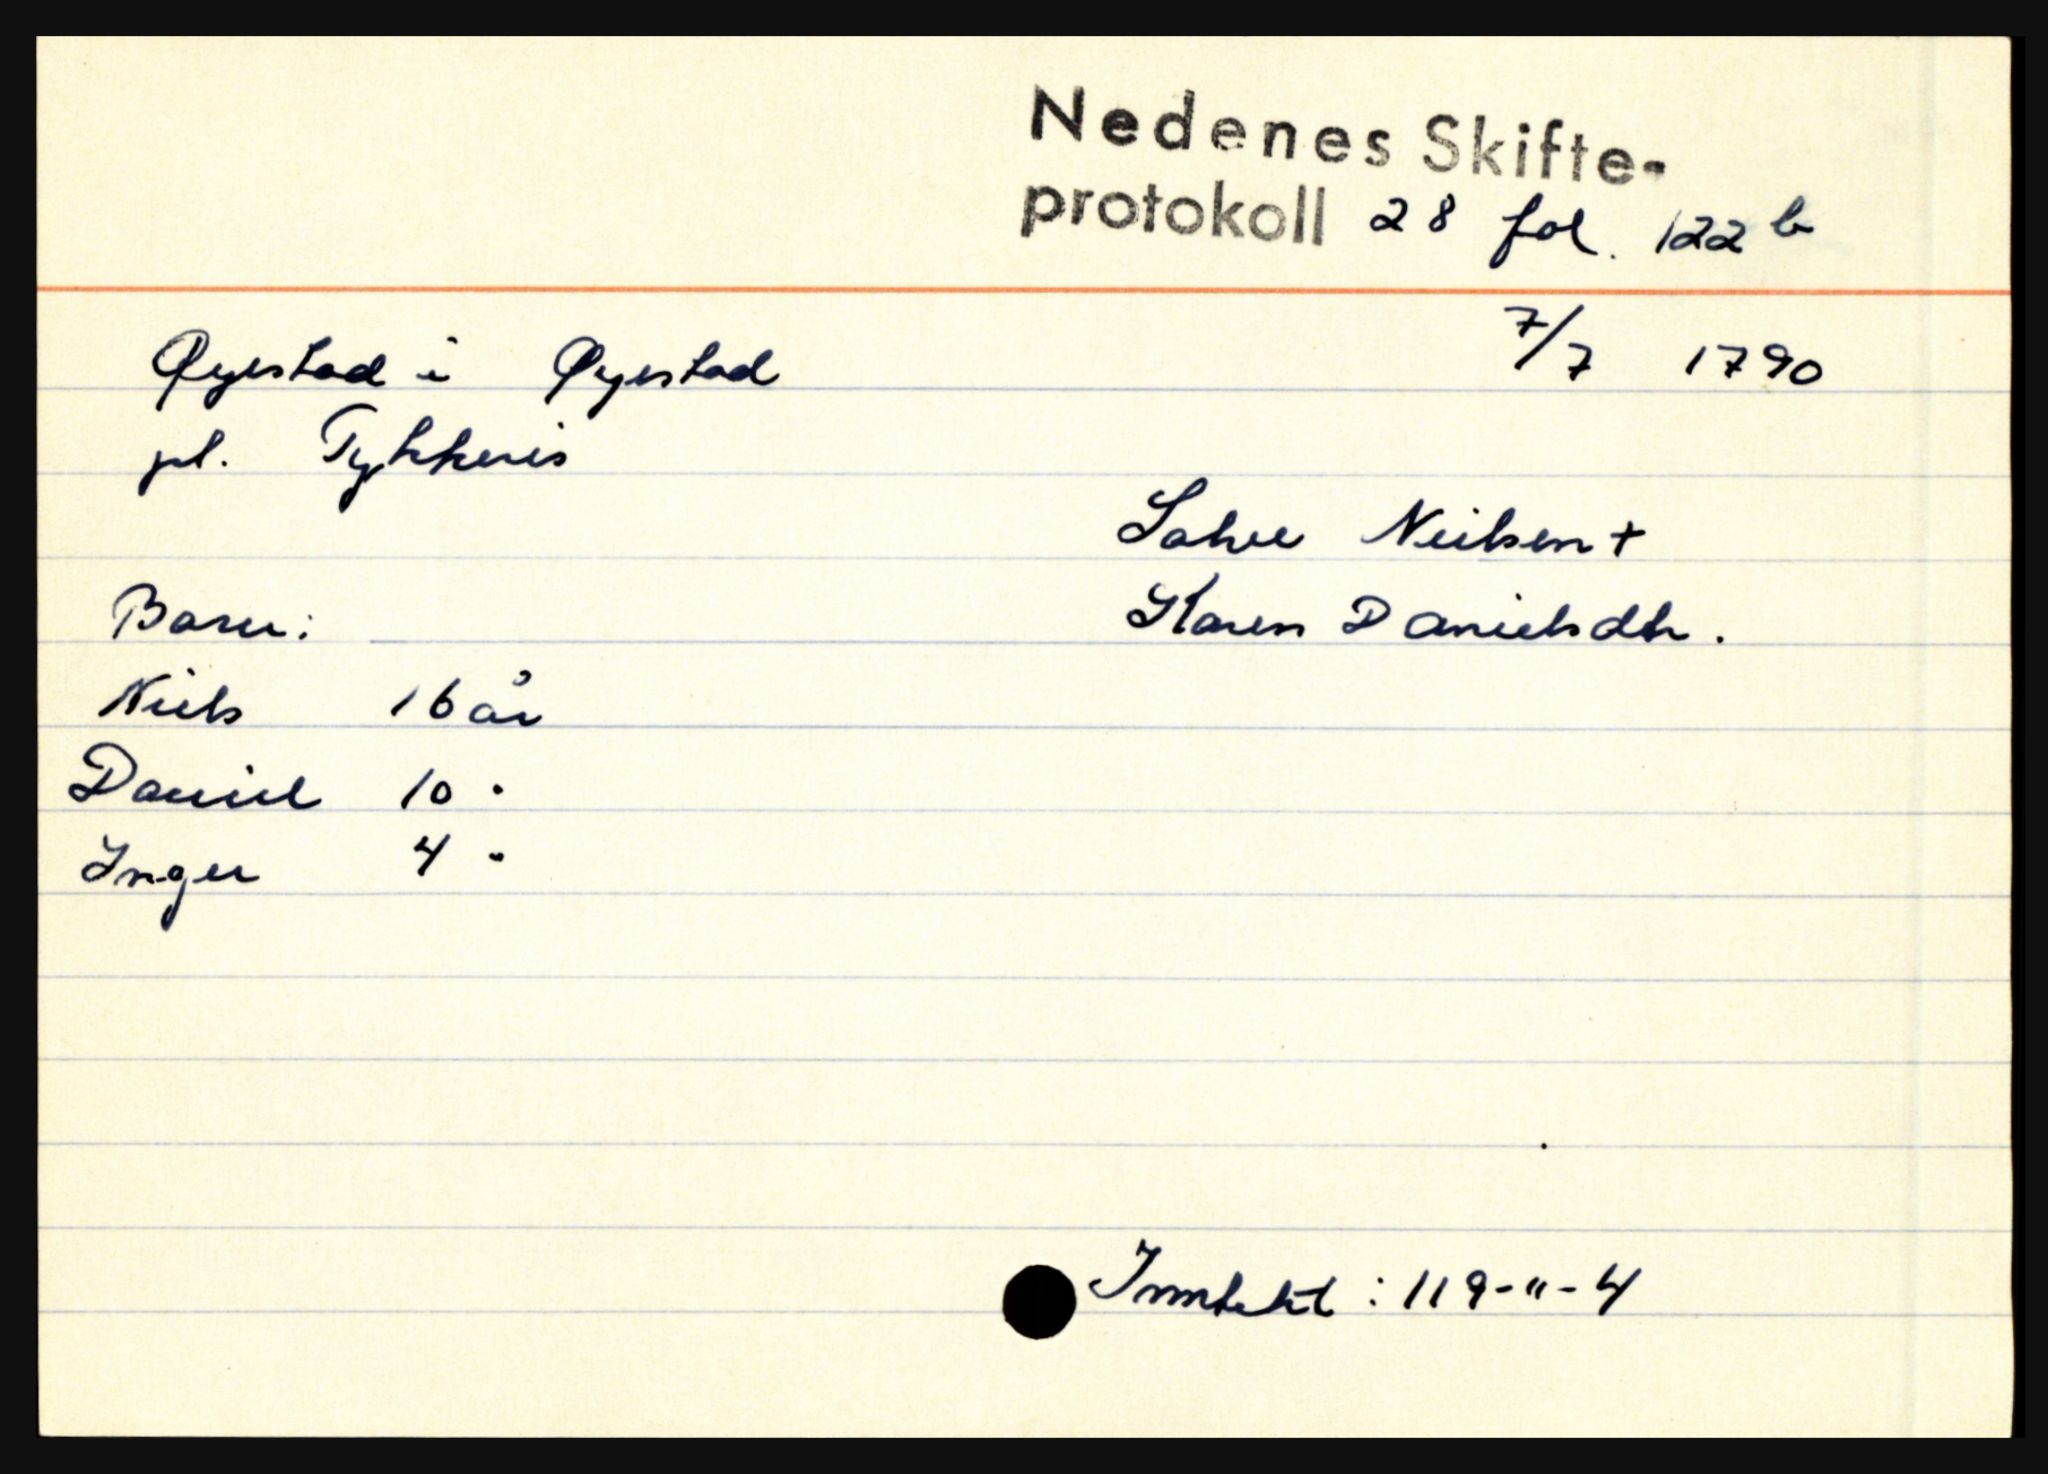 Nedenes Skifte-
protokoll 28 fol. 122 b
Øyestad i Øyestad 7/7 1790
pl. Tykkeris
Nielsen +
Barn: Karen Danielsdtr.
Niels 16 år
Daniel 10 "
Inger 4 "
Inntekt : 119-"-4